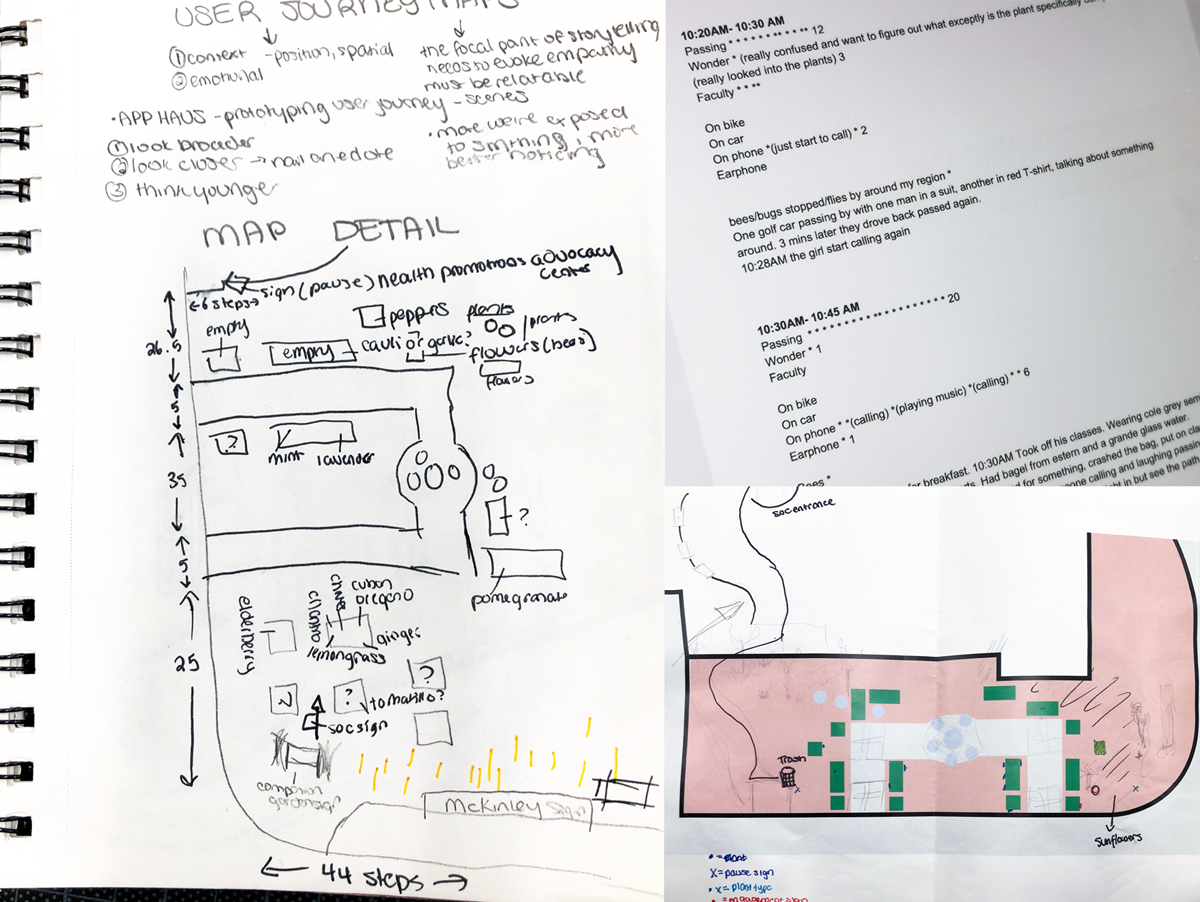 USER JOURNEY MAPS
① context - position, spatial
② emotional
the focal point of storytelling
needs to evoke empathy
must be relatable
• APP HAUS - prototyping user journey - scenes
① look broader
② look closer → nail anecdote
③ think younger
• more we're exposed
to smthing, more
better noticing
MAP DETAIL
sign (pause) health promotions advocacy
center
6 steps
empty
26.5
empty
peppers
plants
plants
cauli or garlic?
flowers (bees)
flowers
5
?
mint
lavender
35
?
5
pomegranate
elderberry
cilantro
chives
cuban
oregano
ginger
lemongrass
25
?
?
tomatillo?
soc sign
companion
garden sign
McKinley Sign
44 steps
10:20AM- 10:30 AM
Passing * * * * * * * ** * ** 12
Wonder * (really confused and want to figure out what exceptly is the plant specifically
(really looked into the plants) 3
Faculty * * **
On bike
On car
On phone *(just start to call) * 2
Earphone
bees/bugs stopped/flies by around my region *
One golf car passing by with one man in a suit, another in red T-shirt, talking about something
around. 3 mins later they drove back passed again.
10:28AM the girl start calling again
10:30AM- 10:45 AM
Passing * * * * * * * * ** * * * * * * * * * * 20
Wonder * 1
Faculty
On bike
On car
On phone * *(calling) *(playing music) *(calling) * * 6
Earphone * 1
for breakfast. 10:30AM Took off his classes. Wearing cole grey
Had bagel from estern and a grande glass water.
for something, crashed the bag, put on
calling and laughing
in but see the path
soc entrance
Trash
x
x
sunflowers
• = plant
X = pause sign
• x = plant type
• = engagement sign